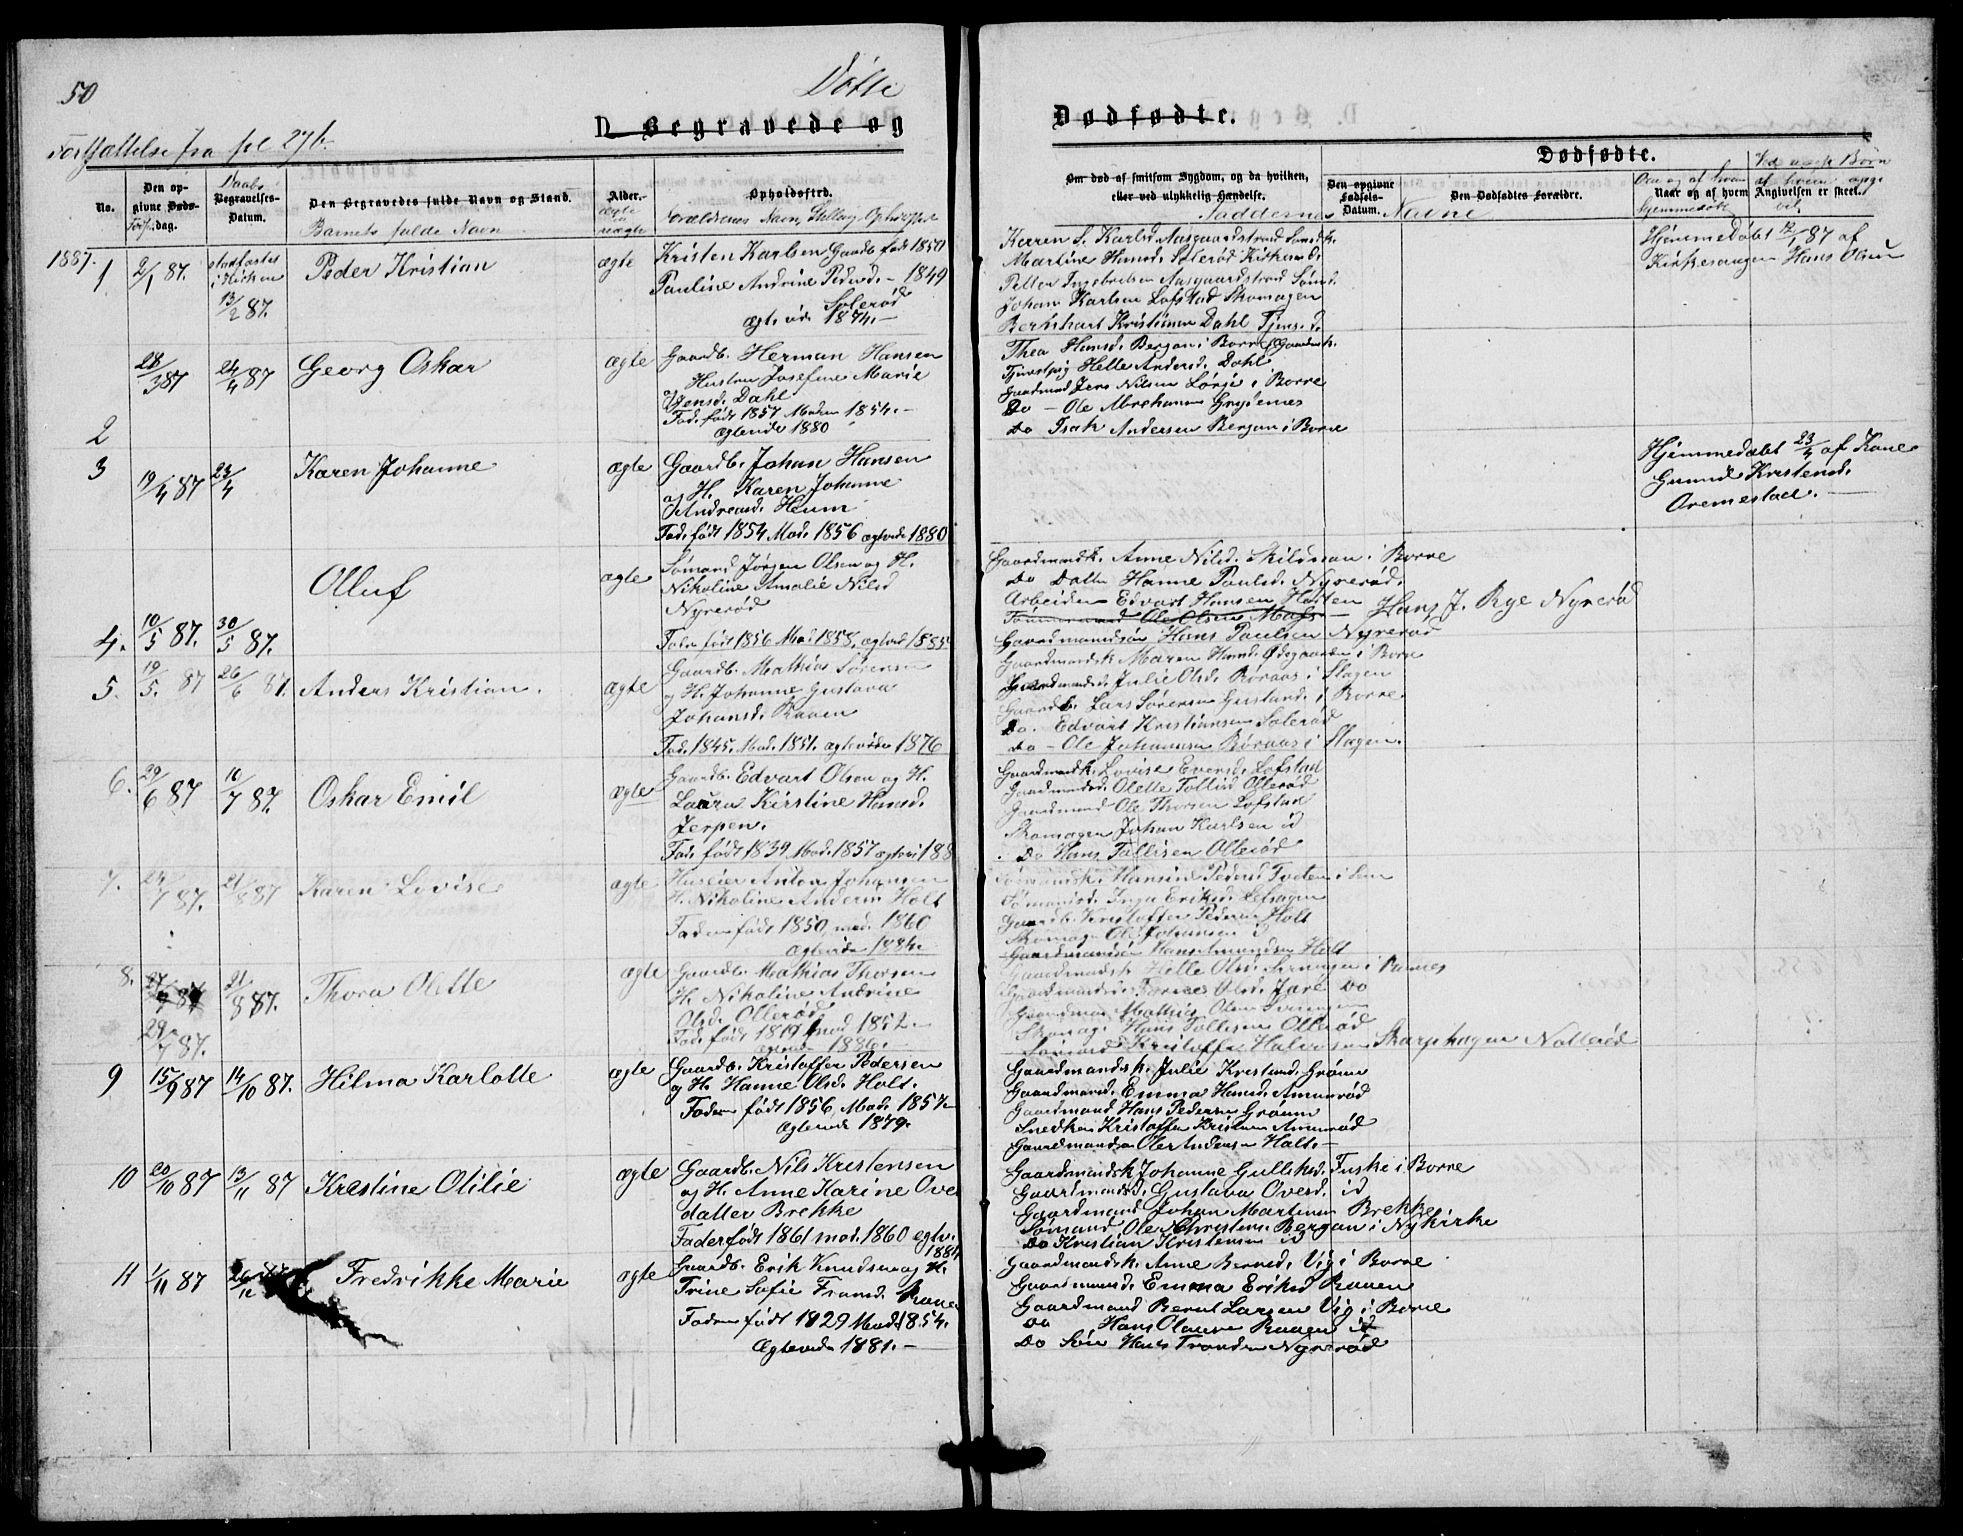 50
Døbte
Fortsættelse fra fol 27 b.
D. Begravede og
No.
Den opgivne Døds-dag.
Føds.
Daabs
Begravelses-Datum.
Den Begravedes fulde Navn og Stand.
Barnets fulde Navn
Alder.
ægte
uægte
Opholdssted.
Forældrenes Navn, Stilling, Opholdssted
1887.
1
2/1 87.
stadfæstet
i Kirken
13/2 87.
Peder Kristian
ægte
Kristen Karlsen Gaardb. født 1850
Pauline Andrine Pedersd. - 1849
Solerød
Egteviede 1874. -
2
28/3 87
24/4 87
Georg Oskar
ægte
Gaardb. Herman Hansen
Hustru Josefine Marie
Jensd. Dahl
Fad. født 1857 Moder 1854. -
Egteviede 1880
3
19/4 87
23/4
Karen Johanne
ægte
Gaardb. Johan Hansen
og H. Karen Johanne
Andreasd. Heum
Fad. født 1854 Mod. 1856 egtevid 1880
4.
10/5 87.
30/5 87.
Olluf
ægte
Sømand Jørgen Olsen og H.
Nikoline Amalie Nilsd
Nyrerød
Fader født 1856 Mod 1858. egtevid 1885
5.
19/5 87
26/6 87.
Anders Kristian.
ægte
Gaardb. Mathias Sørensen
og H. Johanne Gustava
Johansd. Raaen
Fad. 1845. Mod. 1851. egteviede 1876
6.
29/6 87
10/7 87.
Oskar Emil
ægte
Gaardb. Edvart Olsen og H.
Laura Kirstine Hansd.
Jerpen.
Fad. født 1839 Mod. 1857 egtevi 188
7.
24/7 87.
21/8 87
Karen Lovise
ægte
Huseier Anton Johansen
H. Nikoline Anders. Holt
Faderen født 1850, mod. 1860
Egteviede 1884.
8.
29/7 87.
21/8 87.
Thora Olette
ægte
Gaardb. Mathias Thorsen
H. Nikoline Andrine
Olsd. Ollerød
mod 1852. -
egteviede 1886.
9
15/9 87
14/10 87.
Hilma Karlotte
ægte
Gaardb. Kristoffer Pedersen
og H. Hanne Olsd. Holt.
Faderen født 1856. Mod. 1857
Egteviede 1879.
10
20/10 87
13/11 87
Krestine Otilie
ægte
Gaardb. Nils Kristensen
og H. Anne Karine Ove
datter Brekke
Fader født 1861 mod. 1860 egtv.
1884
11
1/11 87
Fredrikke Marie
ægte
Gaardb. Erik Knudsen og H.
Trine Sofie Fransd. Raaen
Faderen født 1829 Mod 1854.
Egteviede 1881. -
Dødfødte.
Om død af smitsom Sygdom, og da hvilken,
eller ved ulykkelig Hændelse.
Faddernes Navne
Dødfødte.
Den opgivne Fødsels-Datum.
Den Dødfødtes Forældre.
Naar og af hvem
Angivelsen er skeet.
Om og af hvem
hjemmedøbt
Ved uægte Børn
af hvem opgi
vet
Karren S. Karlsd Aasgaardstrand Sømdk.
Martine Hansd. Solerød Kirkesd.
Petter Ingebretsen Aasgaardstrand Sømd.
Johan Karlsen Lofstad Skomager
Bernhart Kristiansen Dahl Tjensd.
Hjemmedøbt 12/1 87 af
Kirkesanger Hans Olsen
Thea Hansd. Bergan i Borre Gaardmk.
Tjenestpig Helle Andersd. Dahl
Gaardmand Jens Nilsen Lørge i Borre
Do - Ole Abrahamsen Grydenes
Do Isak Andersen Bergan i Borre
Hjemmedøbt 23/4 af Kone
Gunild Kristensd.
Oremestad. -
Gaardmandk. Anne Nilsd. Skildsaan i Borre
Do Datter Hanne Paulsd. Nyrerød.
Arbeider Edvart Hansen Horten
Tømmermand Ole Olsen Moss -
Hans J. Rye Nyrerød
Gaardmandssøn Hans Paulsen Nyrerød
Gaardmandsk. Maren Hansd. Ødegaarden i Borre
Gaardmandsd. Julie Olsd. Røraas i Slagen
Gaardb. Lars Sørensen Gustand. i Borre
Do. Edvart Kristiansen Solerød
Do - Ole Johannesen Røraas i Slagen.
Gaardmandk. Lovise Eversd. Lofstad
Gaardmandsd. Olette Tollisd Ollerød
Gaardmand Ole Thorsen Lofstad
Skomager Johan Karlsen id
Do Hans Tollisen Ollerød
Sømandsk. Hansine Peders. Tveten i Sem
Sømandsd. Inga Eriksd.
Gaardb. Kristoffer Pedersen Holt
Skomager Ole Johansen id
Gaardmandssøn Hans Amundsen Holt
Gaardmandsk Helle Olsd.
Gaardmandsd. Olsd. Jarl Do
Gaardmand Mathias Olsen
Skomag. Hans Tollisen Ollerød
Sømand Kristoffer Halvorsen Skarphagen Nøtterø
Gaardmandsk. Julie Kristensd. Grønn
Gaardmandsd. Emma Hansd. Amunrød
Gaardmand Hans Pedersen Grønn
Snedker Kristoffer Kristensen Amunrød
Gaardmandssøn Ole Andersen Holt. -
Gaardsmandsk Johanne Gulliksd. Fuske i Borre
Gaardmandsd. Gustava Ovesd. id
Gaardmand Johan Martinsen Brekke
Sømand Ole N Christens. Bergan i Nykirke
Do Kristian Kristensen id
Gaardmandsk. Anne Berntsd. Vig i Borre
Gaardmandsd. Emma Eriksd Raaen
Gaardmand Bernt Larsen Vig i Borre
Do Hans Olausen Raaen id
Do Søn Hans Trondsen Nyrerød